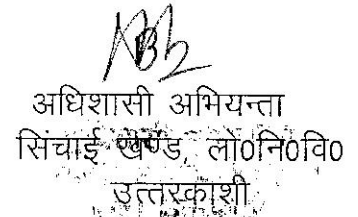 अधिशासी अभियन्ता
सिंचाई खण्ड, लो0नि0वि0
उत्तरकाशी